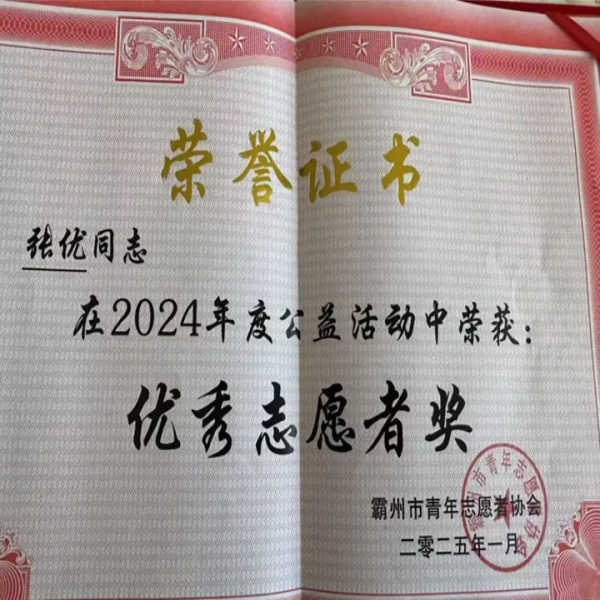 荣誉证书
张优同志
在2024年度公益活动中荣获：
优秀志愿者奖
霸州市青年志愿者协会
二零二五年一月
霸州市青年志愿者协会